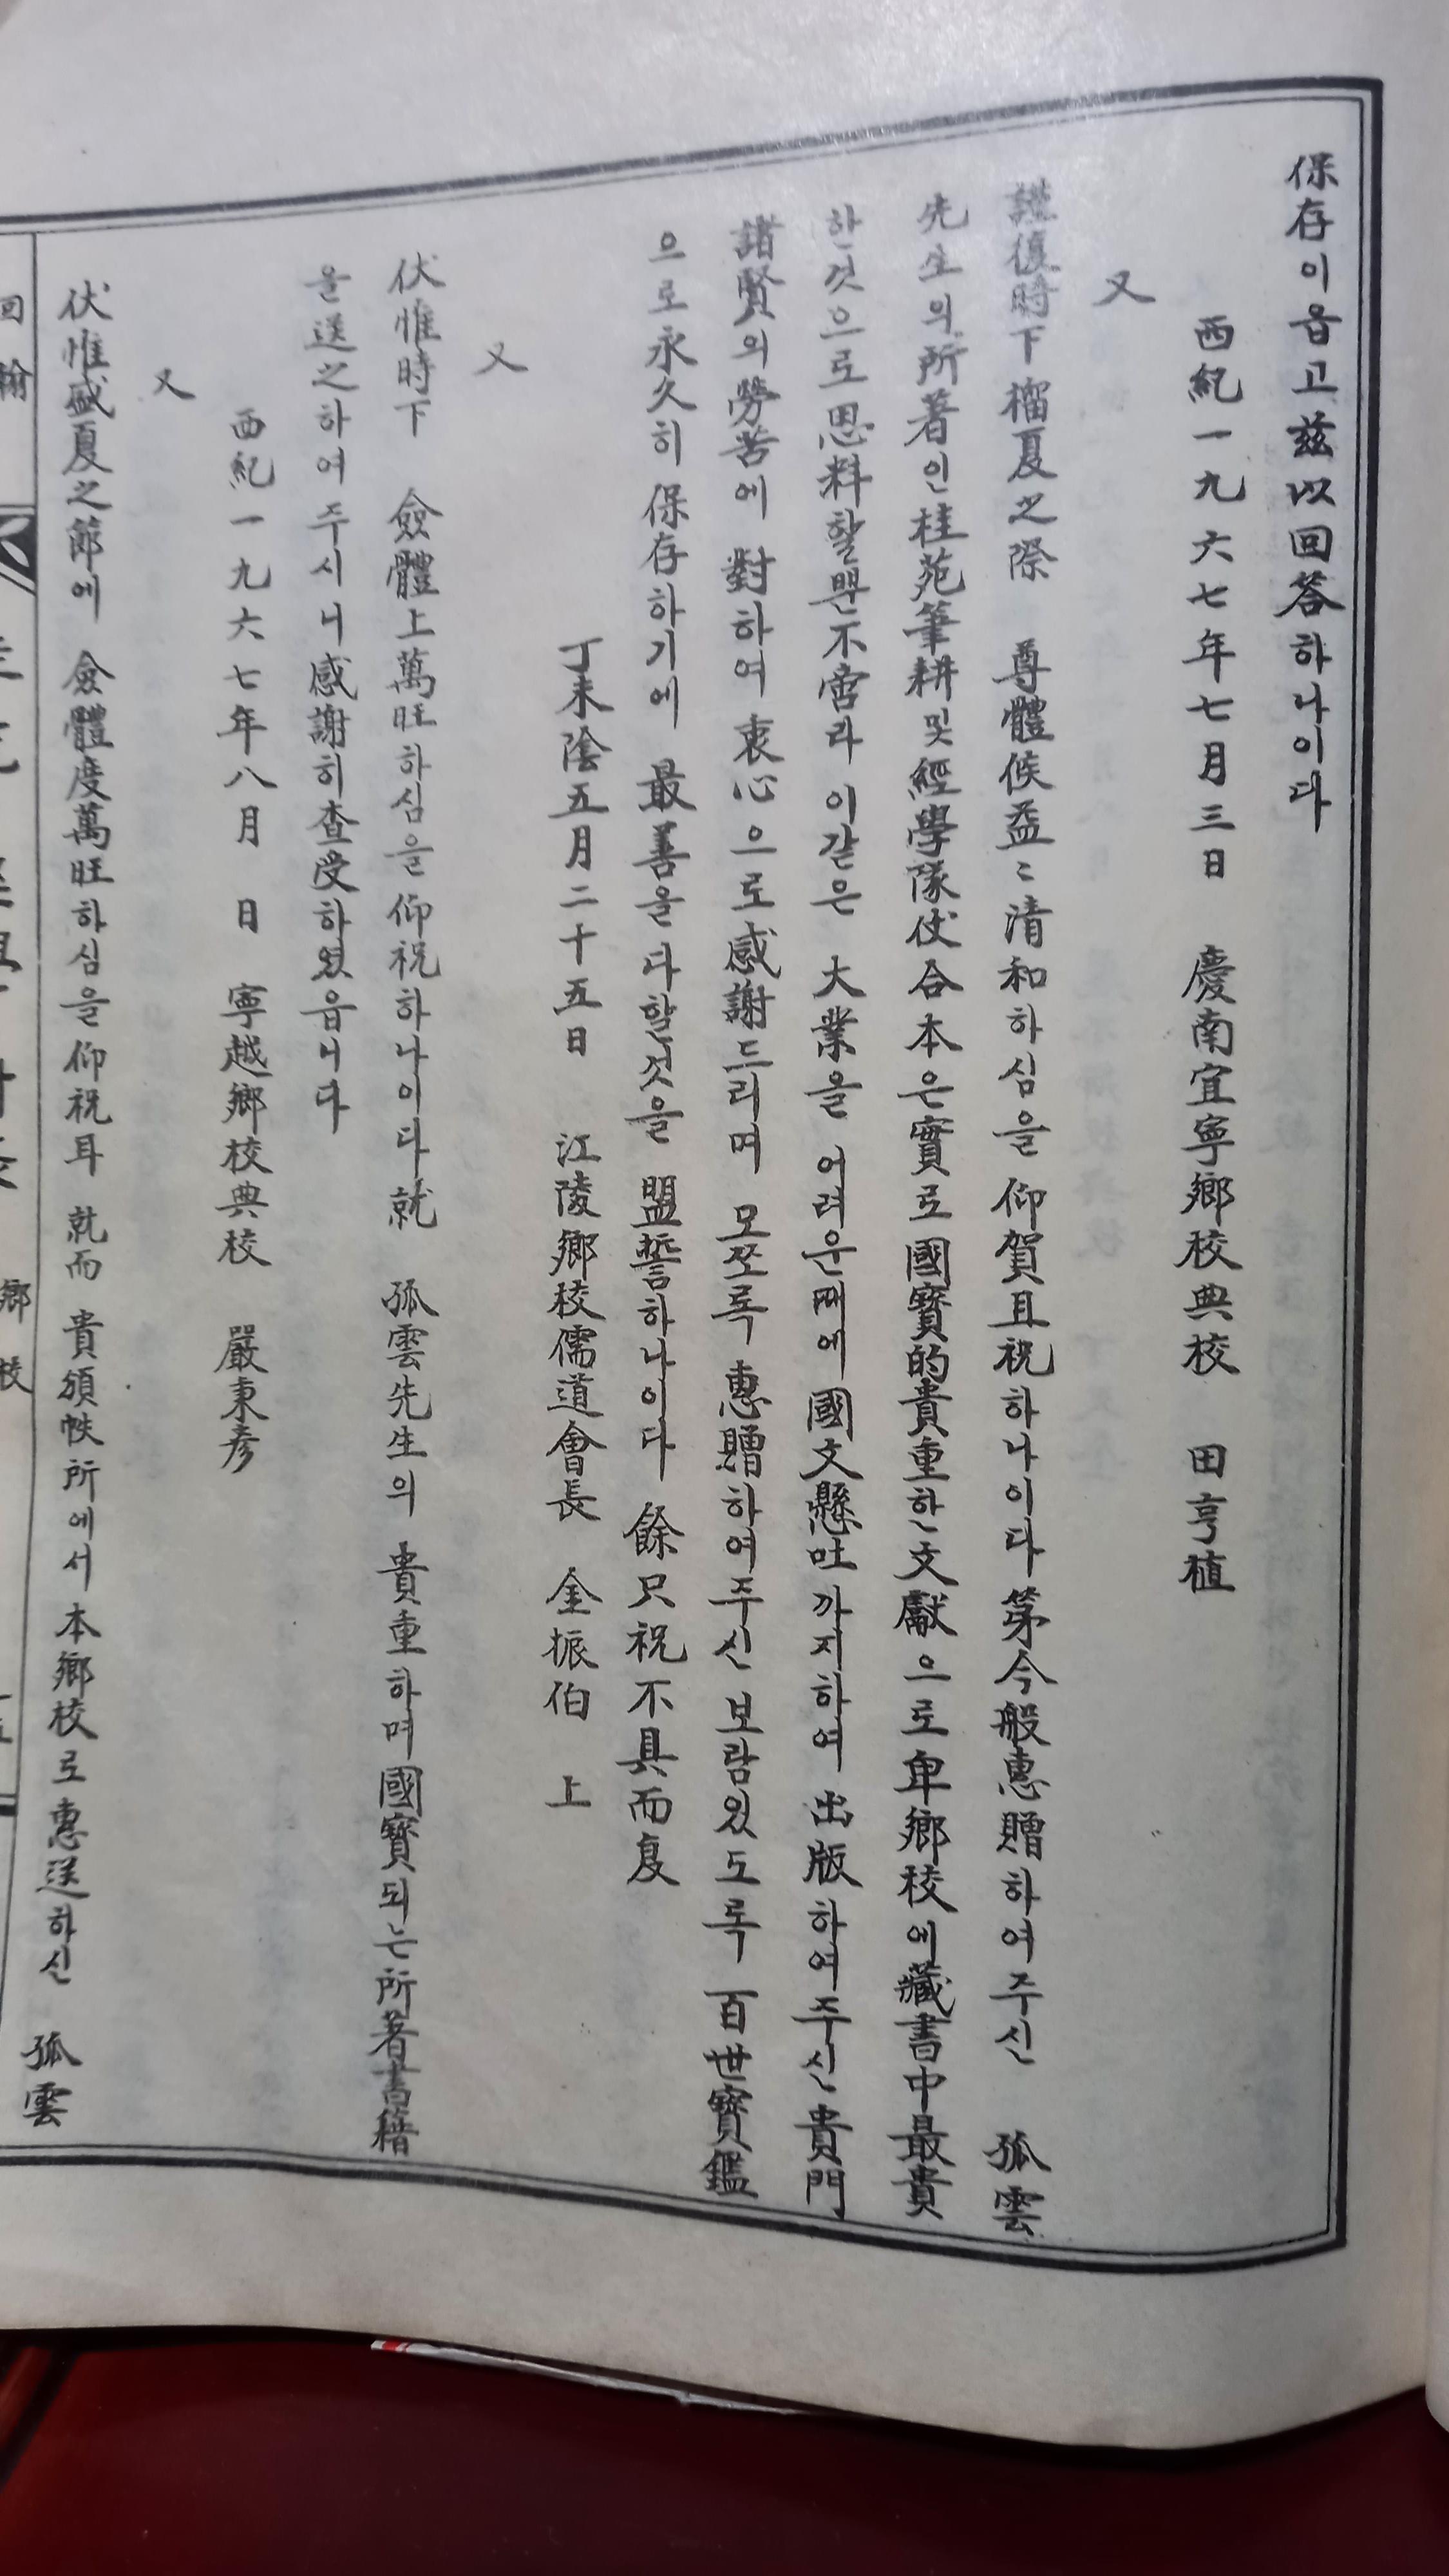 保存이옵고 玆以回答하나이다
西紀一九六七年七月三日 慶南宜寧鄕校典校 田亨植
又
謹復時下榴夏之際 尊體候益〻淸和하심을 仰賀且祝하나이다 第今般惠贈하여주신 孤雲
先生의 所著인 桂苑筆耕 및 經學隊仗合本은 實로 國寶的貴重한 文獻으로 鄕校에 藏書中最貴
한것으로 思料할 不啻라 이같은 大業을 어려운때에 國文懸吐까지하여 出版하여주신 貴門
諸賢의 勞苦에 對하여 衷心으로 感謝드리며 모쪼록 惠贈하여주신 보람있도록 百世寶鑑
으로 永久히 保存하기에 最善을 다할것을 盟誓하나이다 餘只祝不具而复
丁未陰五月二十五日 江陵鄕校儒道會長 金振伯 上
又
伏惟時下 僉體上萬旺하심을 仰祝하나이다 就 孤雲先生의 貴重하며 國寶되는 所著書籍
을 送之하여주시니 感謝히 查受하였읍니다
西紀一九六七年八月 日 寧越鄕校典校 嚴東彦
又
伏惟盛夏之節에 僉體度萬旺하심을 仰祝耳 就而 貴頒帙所에서 本鄕校로 惠送하신 孤雲
回翰
鄕校